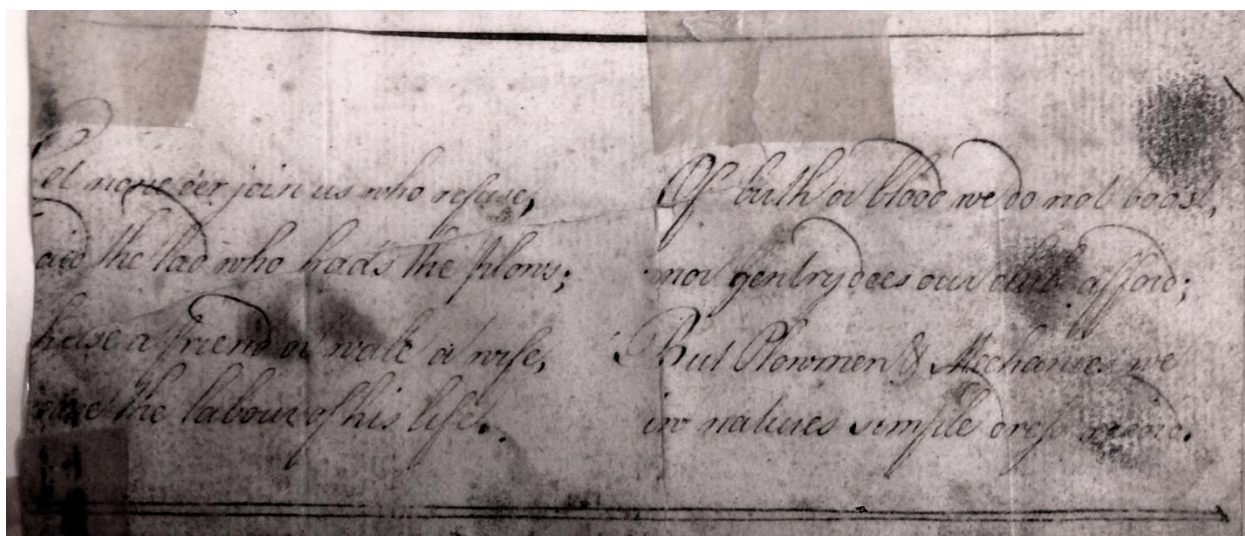 Let none e'er join us who refuse,
aid the lad who hads the Plow;
huse a friend or wale a wife,
the labour of his life.
Of birth or blood we do not boast,
nor gentry does our club afford;
But Plowmen & Mechanics we
in natures simple dress record.